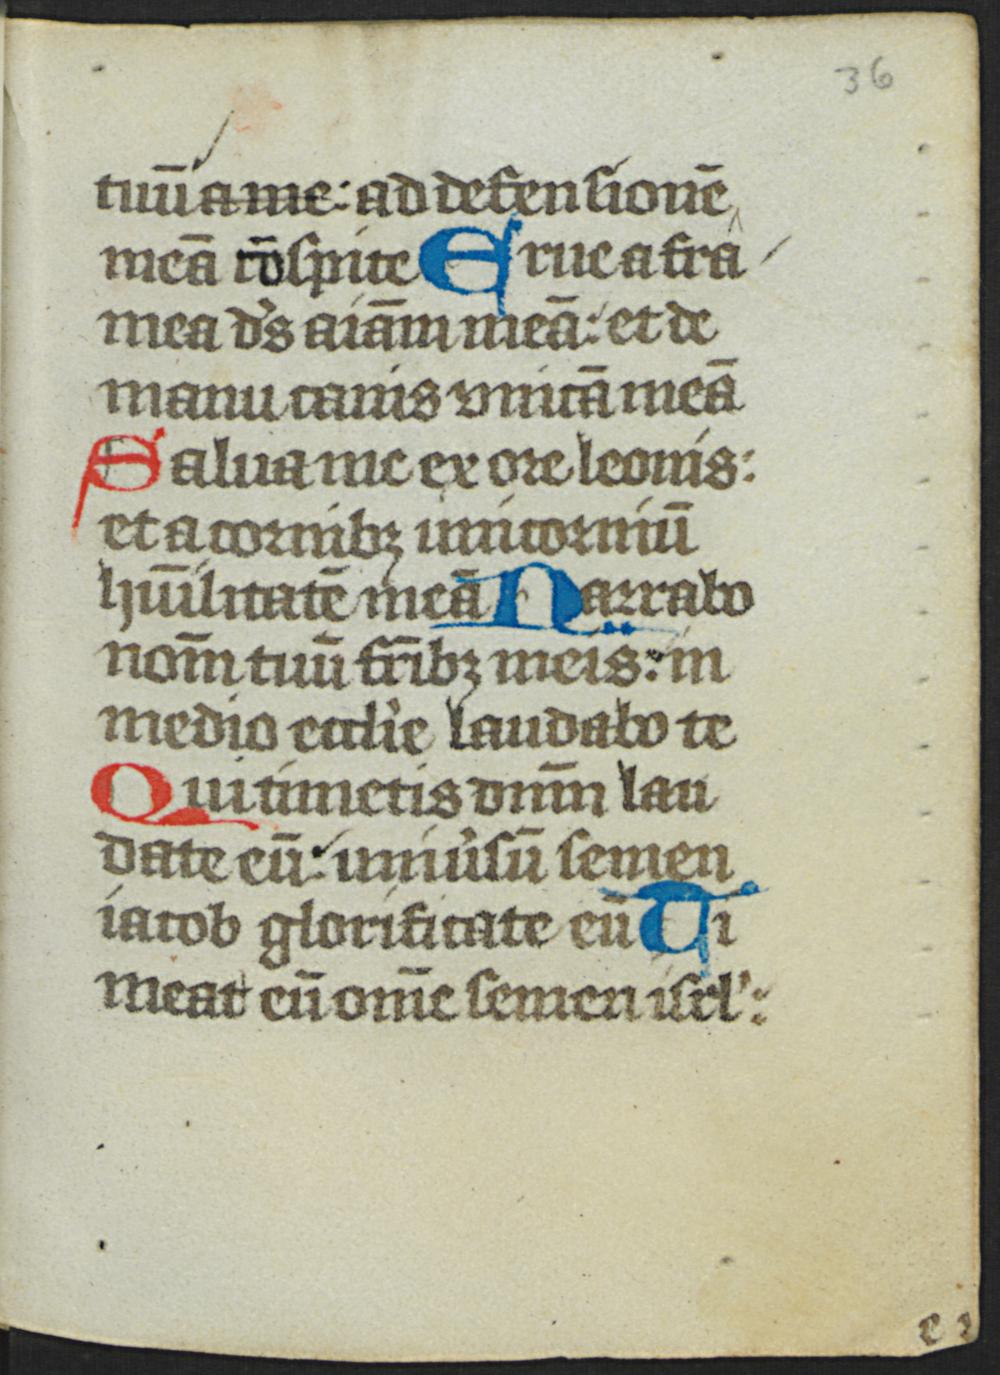 36
tuū a me: ad defensionē
meā cōspice Erue a fra
mea d's aiām meā: et de
manu canis vnicā meā
Salua me ex ore leonis:
et a cornibꝫ unicorniū
hūilitatē meā Narrabo
nom̄ tuū fr̄ibꝫ meis: in
medio eccl'ie laudabo te
Qui timetis dnm̄ lau
date eū: uniu'sū semen
iacob glorificate eū Ti
meat eū om̄e semen isrl':